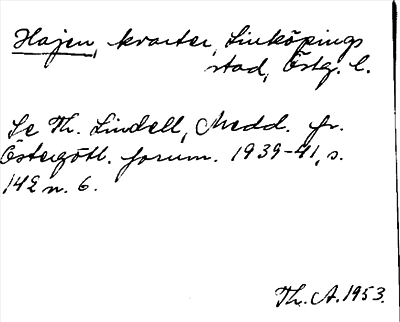 Hajen, kvarter, Linköpings
stad, Östg. l.
Se Th. Lindell, Medd. fr.
Östergötl. fornm. 1939-41, s.
142 n. 6.
Th. A. 1953.